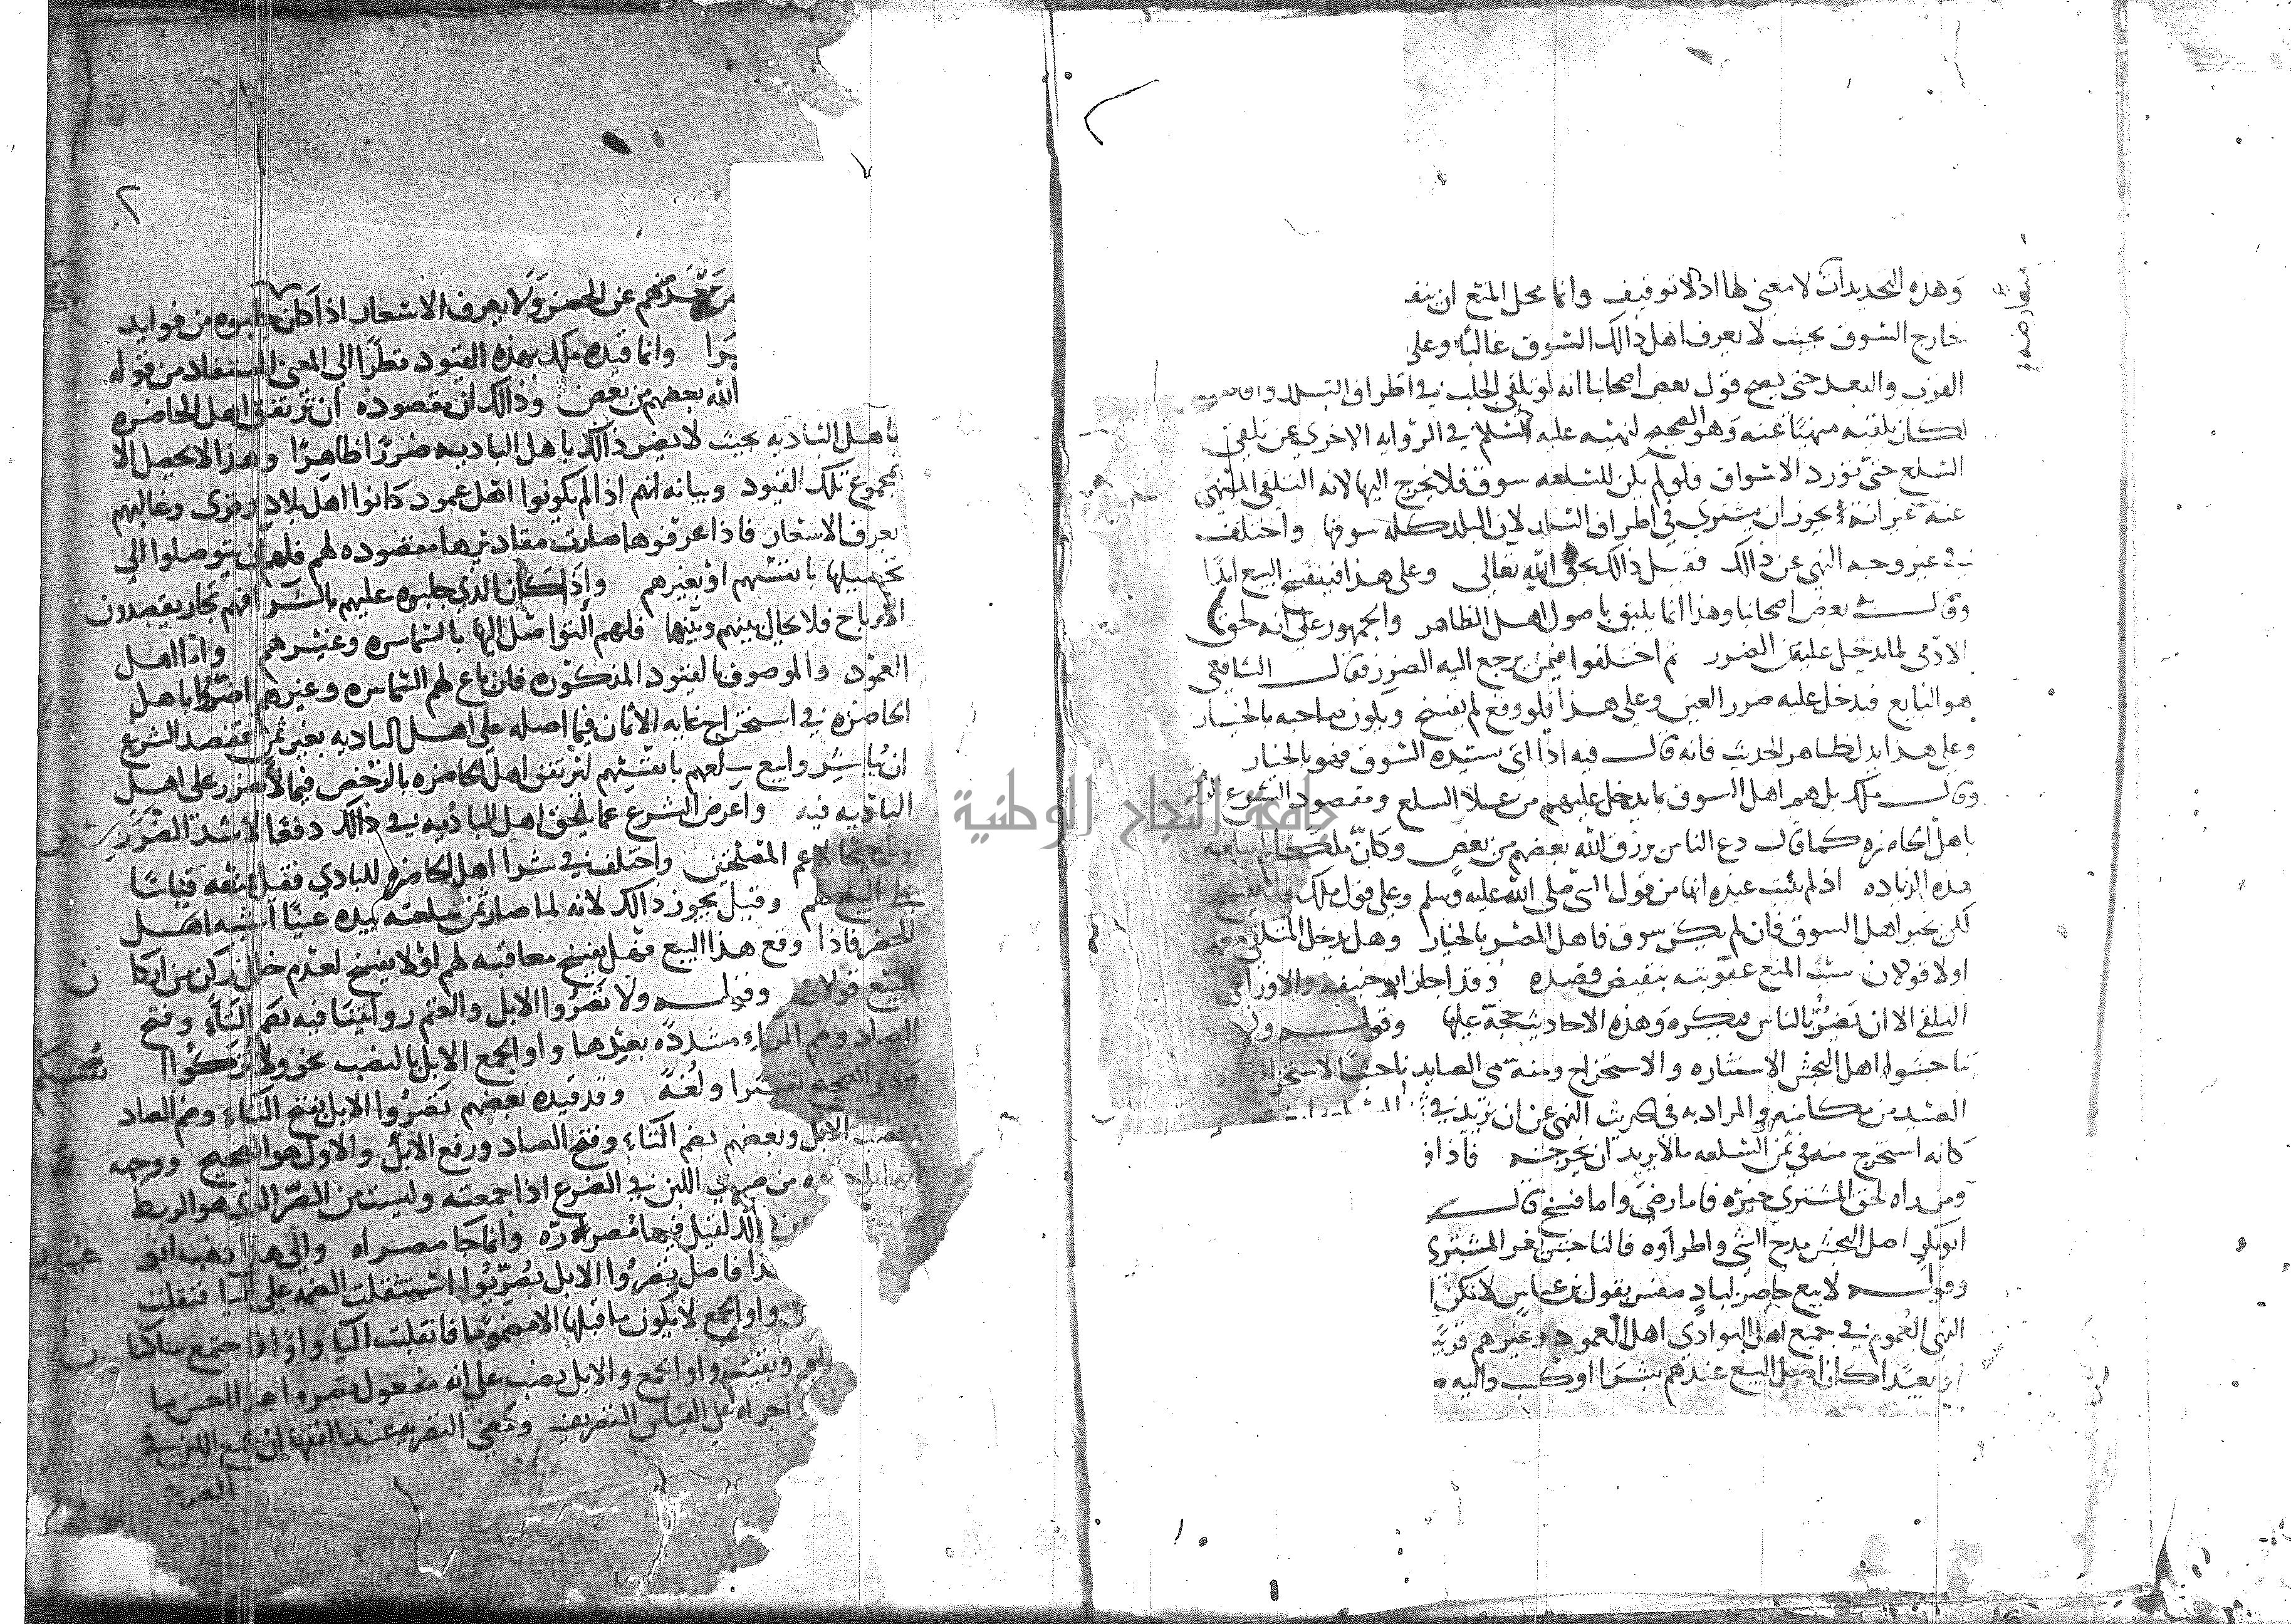 وهذه التحديدات لا معنى لها اذ لا توقيف وانما محل المنع ان
خارج السوق بحيث لا يعرف اهل ذالك السوق غالبا وعلى
القرب والبعد حتى يصح قول بعض اصحابنا انه لو تلقى الجلب في اطراف البلد
لكان تلقيه منهيا عنه وهو الصحيح لنهيه عليه السلام في الروايه الاخرى عن تلقى
السلع حتى تورد الاسواق فلو لم يكن للسلعه سوق فلا يخرج اليها لانه التلقى المنهى
عنه غير انه يجوز ان يشترى في اطراف البلد لان البلد كله سوقها واختلف
في وجه النهى عن ذالك فقيل ذالك لحق الله تعالى وعلى هذا فيفسخ البيع ابدا
وقال بعض اصحابنا وهذا انما يليق باصول اهل الظاهر والجمهور على انه لحق
الادمى لما يدخل عليه من الضرر ثم اختلفوا فيمن يرجع اليه الضرر فقال الشافعى
هو البايع فيدخل عليه ضرر الغبن وعلى هذا فلو وقع لم يفسخ ويكون صاحبه بالخيار
وعلى هذا يدل ظاهر الحديث فانه قال فيه اذا اتى سيده السوق فهو بالخيار
وقال ملك بل هم اهل السوق بما يدخل عليهم من غلا السلع ومقصود الشرع
باهل الحاضره كما قال دع الناس يرزق الله بعضهم من بعض وكان ملكا لم
هذه الزياده اذ لم يثبت عنده انها من قول النبي صلى الله عليه وسلم وعلى قول ملك فلا يفسخ
لكن يخير اهل السوق فان لم يكن سوق فاهل المصر بالخيار وهل يدخل المتلقى معهم
اولا قولان سبب المنع عقوبته بنقيض قصده وقد اجاز ابو حنيفه والاوزاعى
التلقى الا ان يضر بالناس فيكره وهذه الاحاديث حجة عليها وقوله ولا
تناجشوا اصل النجش الاستثاره والاستخراج ومنه سمى الصايد ناجشا لاستخراجه
الصيد من مكامنه والمراد به في الحديث النهى عن ان يزيد في
كانه استخرج منه في ثمن السلعه ما لا يريد ان يخرجه فاذا
ومن راه لحق المشترى خيره فاما رضى واما فسخ قال
ابو بكر اصل النجش مدح الشى واطراوه فالناجش يغر المشترى
وقوله لا يبيع حاضر لباد مفسر بقول بن عباس لا تكن
النهى العموم في جميع اهل البوادى اهل العمود وغيرهم
بعيدا كان اصل البيع عندهم بشرا او كسب واليه
منهم عن الحضر ولا يعرف الاسعار اذا كان جلبوه من فوايد
وانما قيده ملك بهذه القيود نظرا الى المعنى المستفاد من قوله
الله بعضهم من بعض وذالك ان مقصوده ان يرتفق اهل الحاضره
باهل الباديه بحيث لا يضر ذالك باهل الباديه ضررا ظاهرا وهذا لا يحصل الا
بمجموع تلك القيود وبيانه انهم اذا لم يكونوا اهل عمود كانوا اهل بلاد وقرى وغالبهم
يعرف الاسعار فاذا عرفوها صارت مقاديرها مقصوده لهم فلهم ان يتوصلوا الى
تحصيلها بانفسهم او بغيرهم واذا كان الذى جلبوه عليهم بالشرا فهم تجار يقصدون
الارباح فلا يحال بينهم وبينها فلهم التواصل اليها بالسماسره وغيرهم واذا اهل
العمود والموصوف بالقيود المذكوره فان باع لهم السماسره وغيرهم اضروا باهل
الحاضره في استخراج غايه الاثمان فيما اصله على اهل الباديه بغير ثمن فقصد الشرع
ان يباشروا بيع سلعهم بانفسهم ليرتفق اهل الحاضره بالرخص فيما لا ضرر على اهل
الباديه فيه واعرض الشرع عما يلحق اهل الباديه في ذالك دفعا لاشد الضررين
وترجيحا لاعم المصلحتين واختلف في شرا اهل الحاضره للبادي فقيل بمنعه قياسا
على البيع لهم وقيل يجوز ذالك لانه لما صار ثمن سلعته بيده عينا اشبه اهل
الحضر فاذا وقع هذا البيع فهل يفسخ معاقبه لهم او لا يفسخ لعدم خلل ركن من اركان
البيع قولان وقوله ولا تصروا الابل والغنم روايتنا فيه بضم التاء وفتح
الصاد وضم الراء مشددة بعدها واو الجمع الابل بالنصب نحو ولا تزكوا انفسكم
وهو الصحيح تفسيرا ولغة وقد قيده بعضهم تصروا الابل بفتح التاء وضم الصاد
ونصب الابل وبعضهم بضم التاء وفتح الصاد ورفع الابل والاول هو الصحيح ووجهه
من صريت اللبن في الضرع اذا جمعته وليست من الصر الذى هو الربط
لقيل فيها مصروره وانما جا مصراه والى هذا ذهب ابو عبيد
فاصل تصروا الابل تصريوا استثقلت الضمه على اليا فنقلت
واو الجمع لا يكون ما قبلها الا مضموما فانقلبت اليا واوا فاجتمع ساكنان
وبقيت واو الجمع والابل نصب على انه مفعول تصروا هذا احسن ما
اجراه على القياس التصريف ومعنى التصريه عند الفقها ان يجمع اللبن في
جامعة النجاح الوطنية